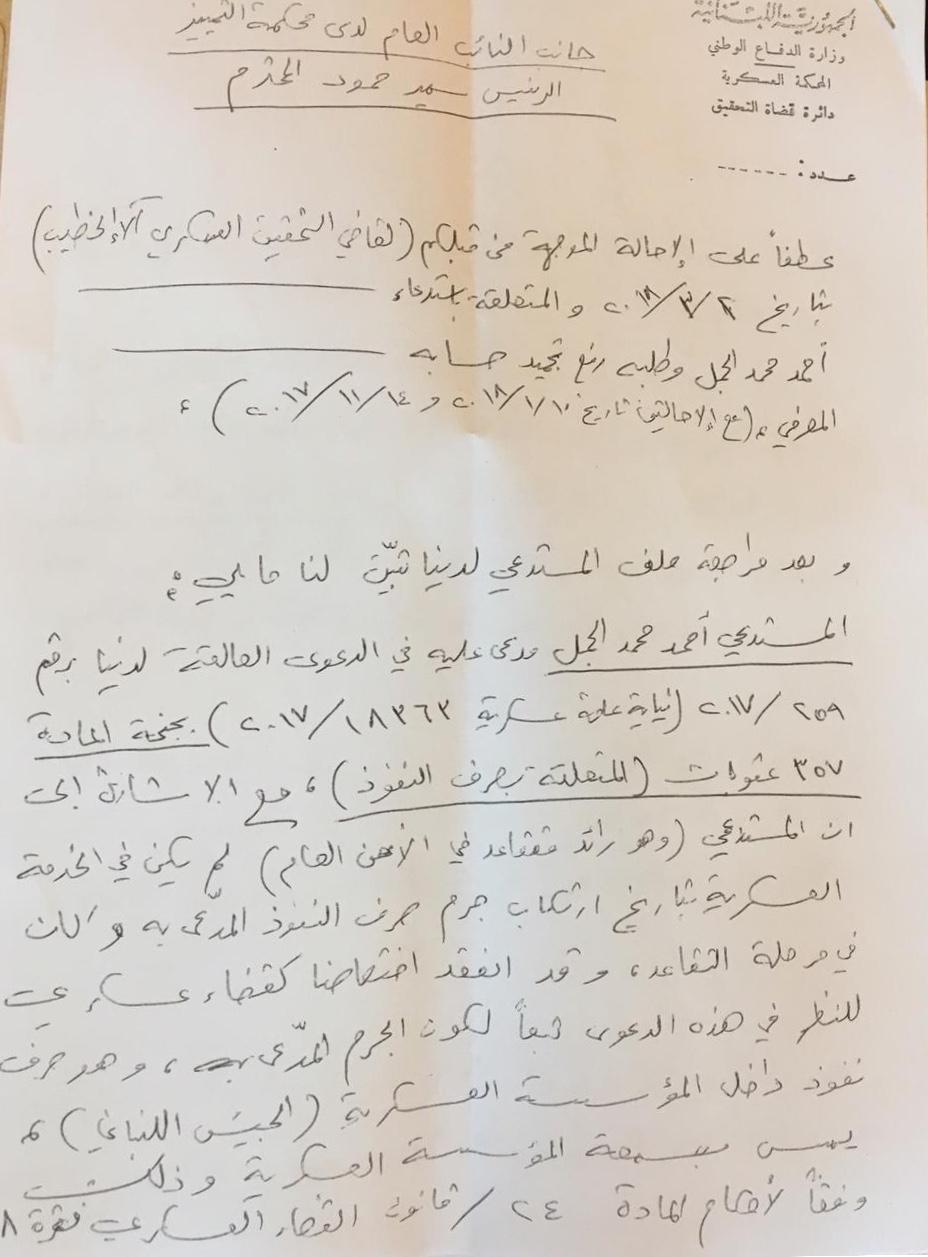 الجمهورية اللبنانية
وزارة الدفاع الوطني
المحكمة العسكرية
دائرة قضاة التحقيق
عدد: ------
جانب النائب العام لدى محكمة التمييز
الرئيس سمير حمود المحترم
عطفاً على الإحالة الموجهة من قبلكم (لقاضي التحقيق العسكري آلاء الخطيب)
بتاريخ ٢٠١٨/٣/٢ والمتعلقة باستدعاء
أحمد محمد الجمل وطلبه رفع تجميد حسابه
المصرفي، (مع الإحالتين تاريخ ٢٠١٨/١/١٠ و ٢٠١٧/١١/١٤)،
و بعد مراجعة ملف المستدعي لدينا تبيّن لنا ما يلي:
المستدعي أحمد محمد الجمل مدعى عليه في الدعوى العالقة لدينا برقم
٢٠١٧/٢٥٩ (نيابة عامة عسكرية ٢٠١٧/١٨٣٦٣) بجنحة المادة
٣٥٧ عقوبات (المتعلقة بصرف النفوذ)، مع الاشارة إلى
ان المستدعي (وهو رائد متقاعد في الأمن العام) لم يكن في الخدمة
العسكرية بتاريخ ارتكاب جرم صرف النفوذ المدّعى به وكان
في مرحلة التقاعد، وقد انعقد اختصاصنا كقضاء عسكري
للنظر في هذه الدعوى تبعاً لكون الجرم المدّعى به، وهو صرف
نفوذ داخل المؤسسة العسكرية (الجيش اللبناني)
يمس بسمعة المؤسسة العسكرية وذلك
وفقاً لأحكام المادة ٢٤ / قانون القضاء العسكري فقرة ٨